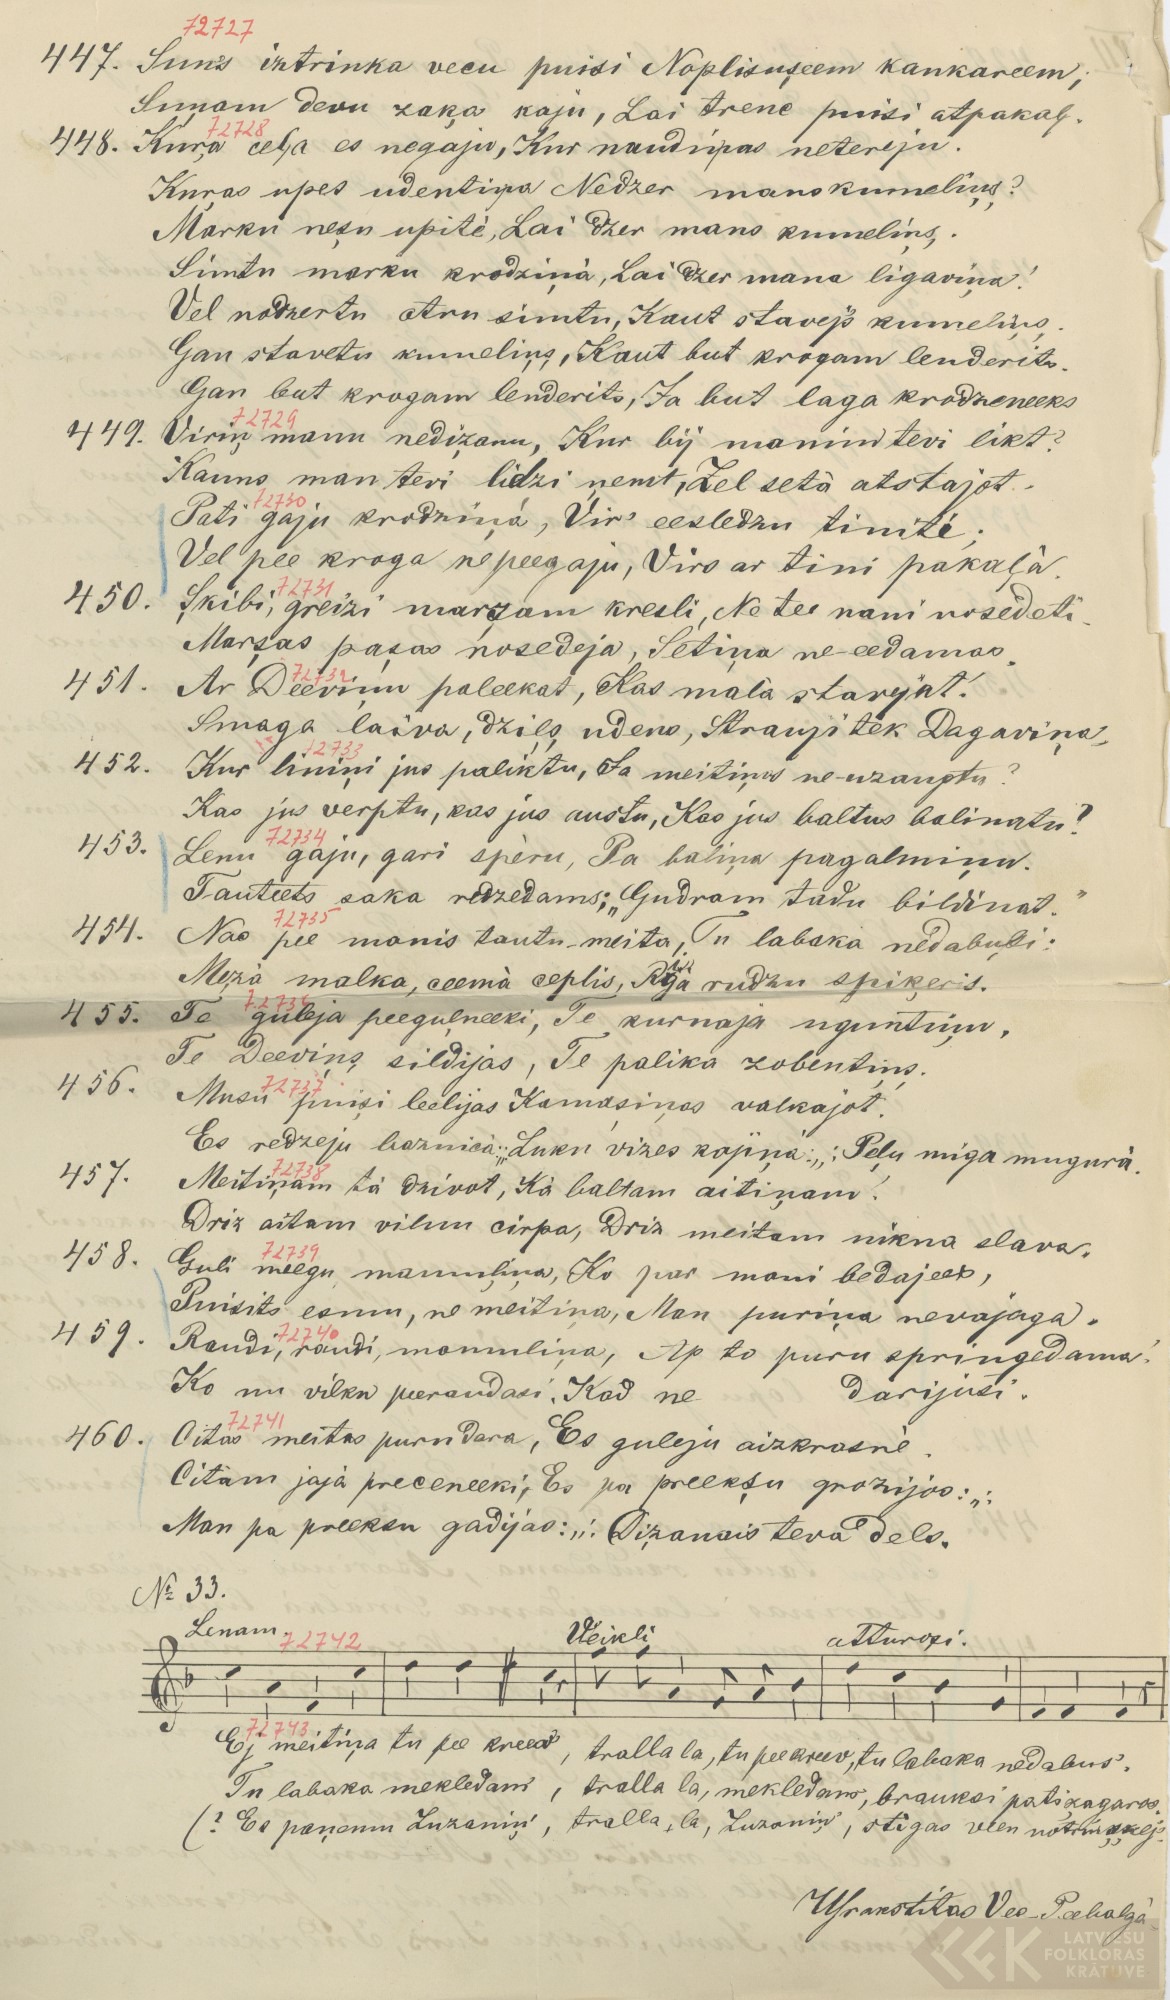 72727
447. Suns iztrinka vecu puisi Noplisuşeem kankareem,
Suņam devu zaķa kaju, Lai trenc puisi atpakaļ.
72728
448. Kuŗa ceļa es negaju, Kur naudiņas netereju.
Kuŗas upes udentiņa Nedzer mans kumeliņş?
Marku neşu upitè, Lai dzer mans kumeliņş.
Simtu marku krodziņà, Lai dzer mana ligaviņa!
Vel nodzertu otru simtu, Kaut stavejs kumeliņş.
Gan stavetu kumeliņş, Kaut but krogam lenderits.
Gan but krogam lenderits, Ja but laga krodzeneeks
72729
449. Viriņ manu nedižanu, Kur bij manim tevi likt?
Kauns man tevi lidzi ņemt, Žel setà atstajot.
72730
Pati gaju krodziņà, Vir' eesledzu tinitè;
Vel pee kroga nepeegaju, Virs ar tini pakaļà.
72731
450. Şkibi, greizi marşam kresli, Ne tee nani nosedeti.
Marşas paşas nosedeja, Setiņa ne-eedamas.
72732
451. Ar Deeviņu paleekat, Kas malà stavejat!
Smaga laiva, dziļş udens, Strauji tek Dagaviņa.
72733
452. Kur liniņi jus paliktu, Ja meitiņas ne-uzaugtu?
Kas jus verptu, kas jus austu, Kas jus baltus balinatu?
72734
453. Lenu gaju, gari spèru, Pa baliņa pagalmiņu.
Tauteets saka redzedams: „Gudram tadu bildinat."
72735
454. Nac pee manis tautu-meita, Tu labaka nedabuşi:
Mežà malka, ceemà ceplis, Rijà rudzu spiķeris.
72736
455. Te guleja peeguļneeki, Te kurnaja uguntiņu,
Te Deeviņş sildijas, Te palika zobentiņş.
72737
456. Musu puişi leelijas Kamaşiņas valkajot.
Es redzeju baznicà:„: Luku vizes kajiņà:„: Peļu miga mugurà.
72738
457. Meitiņam tà dzivot, Kà baltam aitiņam!
Driz aitam vilnu cirpa, Driz meitam nikna slava.
72739
458. Guli meegu mamuliņa, Ko par mani bedajees,
Puisits esmu, ne meitiņa, Man puriņa nevajaga.
72740
459. Raudi, raudi, mamuliņa, Ap to puru springedama!
Ko nu vilku peeraudasi. Kad ne darijusi.
72741
460. Citas meitas puru dara, Es guleju aizkrasnè.
Citàm jajà preceneeki, Es pa preekşu grozijos:„:
Man pa preekşu gadijas:„: Dižanais teva dels.
№ 33.
Lenam. Veikli atturoşi.
72742
72743
Ej meitiņa tu pee kreev', tralla la, tu pee kreev, tu labaka nedabus'.
Tu labaka mekledam', tralla la, mekledams, brauksi pati žagaros.
(? Es paņemu Luzaniņ', tralla, la, Luzaniņ', stigas vien
Usrakstitas Vec-Peebalgà
LATVIEŠU
FOLKLORAS
KRĀTUVE